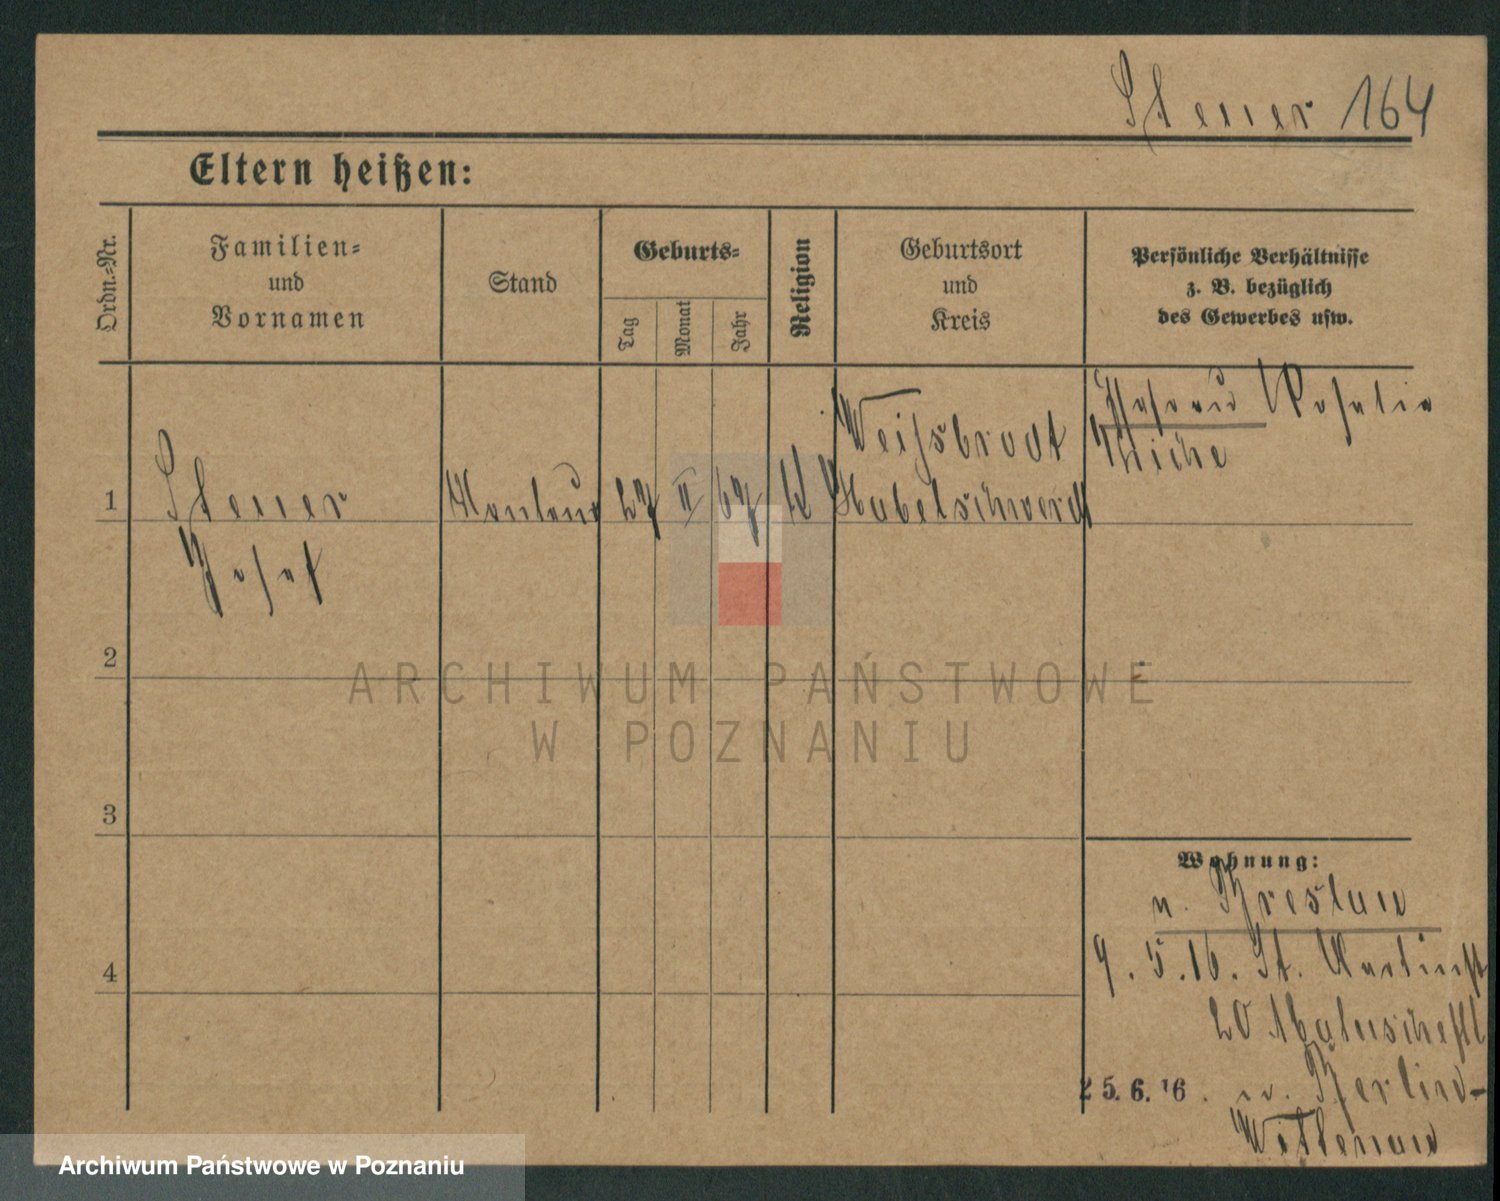 Steuer 164
Eltern heißen:
Ordn.-Nr.
Familien-
und
Vornamen
Stand
Geburts-
Tag
Monat
Jahr
Religion
Geburtsort
und
Kreis
Persönliche Verhältnisse
z. B. bezüglich
des Gewerbes usw.
1
Steuer
Josef
Monteur
27
II
67
K
Weißbrodt
Habelschwerdt
Ehefrau Rosalia
2
3
4
Wohnung:
n. Breslau
9.5.16. St. Martinst
20
25.6.16. n. Berlin-
Wittenau
ARCHIWUM PAŃSTWOWE
W POZNANIU
Archiwum Państwowe w Poznaniu